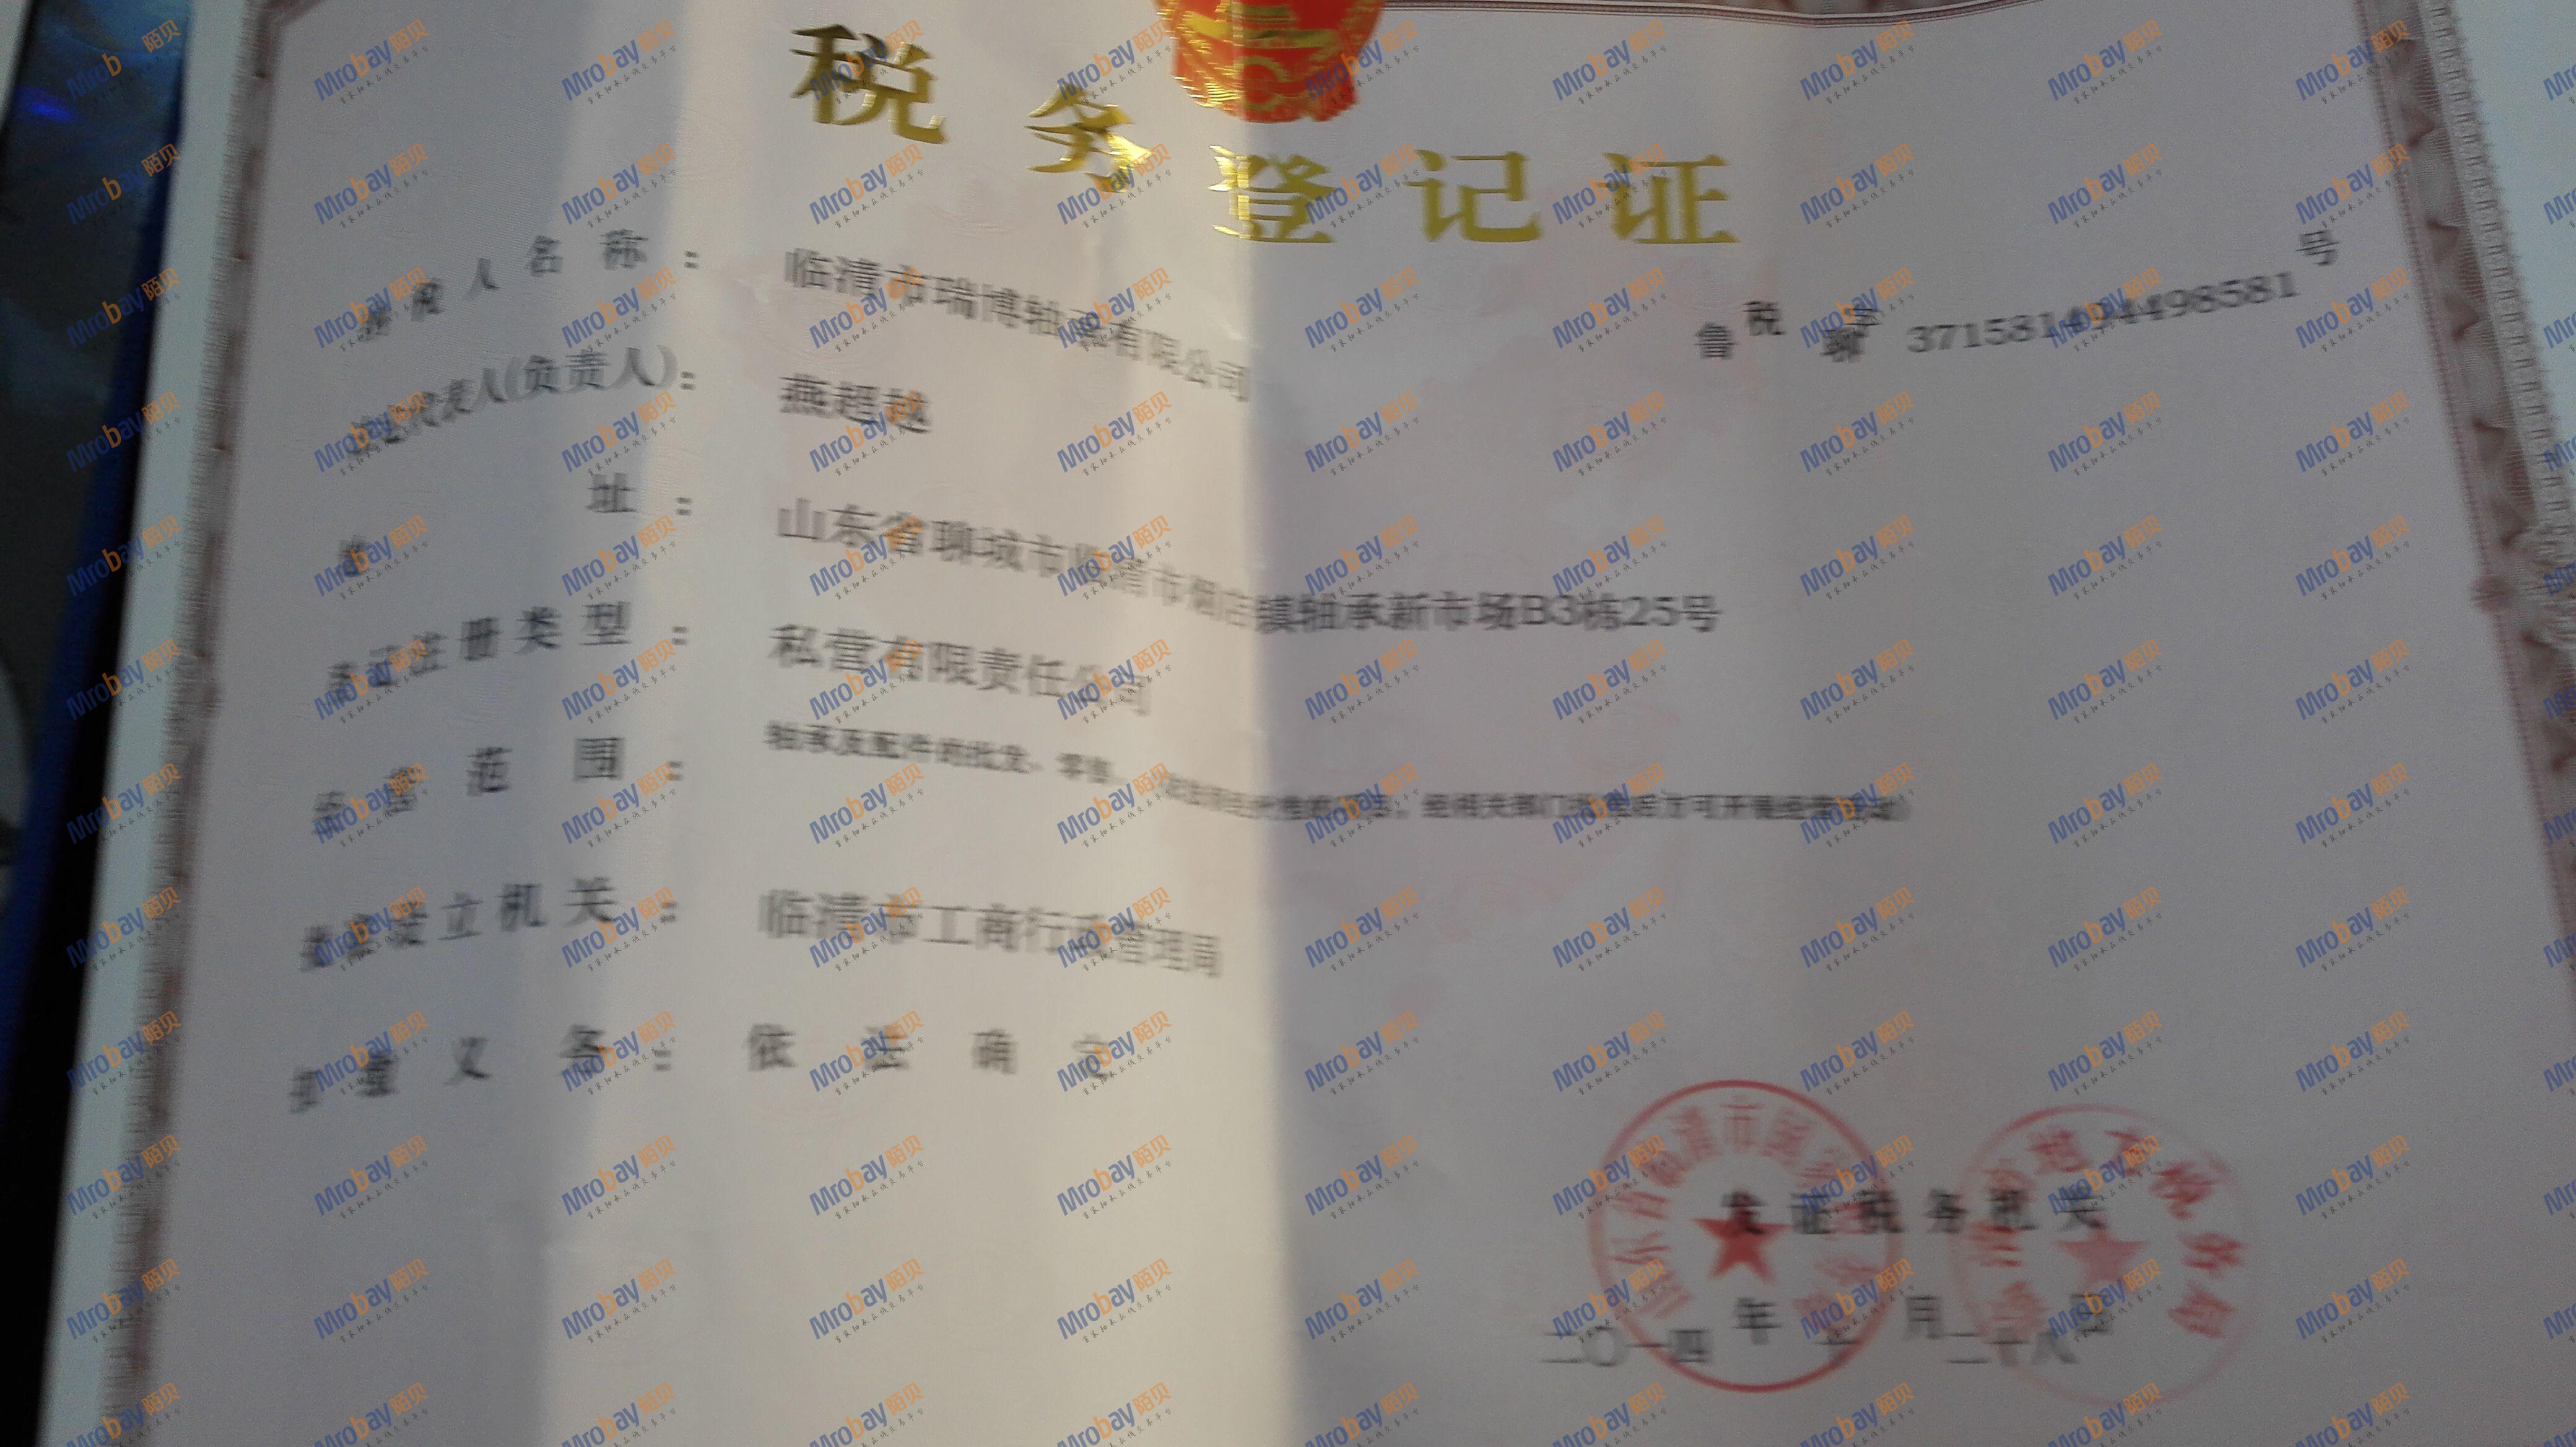 税务登记证
鲁税 聊字 371581494498581号
纳税人名称：临清市瑞博轴承有限公司
法定代表人(负责人)：燕超越
地 址：山东省聊城市临清市烟店镇轴承新市场B3栋25号
登记注册类型：私营有限责任公司
经营范围：轴承及配件的批发、零售。（依法须经批准的项目，经相关部门批准后方可开展经营活动）
批准设立机关：临清市工商行政管理局
扣缴义务：依法确定
发证税务机关
二〇一四年 月二十八日
Mrobay陌贝